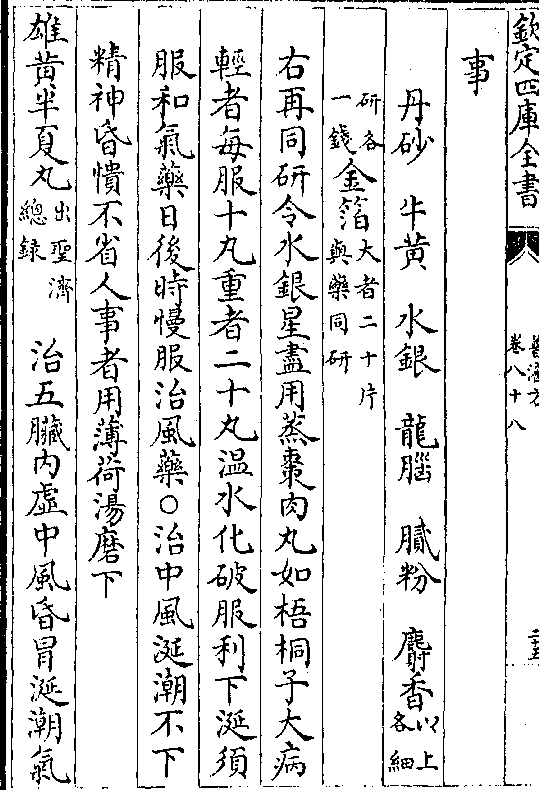 欽定四庫全書
普濟方
卷八十八
二十五
事
丹砂 牛黄 水銀 龍腦 膩粉 麝香以上各細
研各一錢金箔大者二十片與藥同研
右再同研令水銀星盡用蒸棗肉丸如梧桐子大病
輕者每服十丸重者二十丸温水化破服利下涎須
服和氣藥日後時慢服治風藥○治中風涎潮不下
精神昏憒不省人事者用薄荷湯磨下
雄黄半夏丸出聖濟總録 治五臟内虛中風昏冒涎潮氣